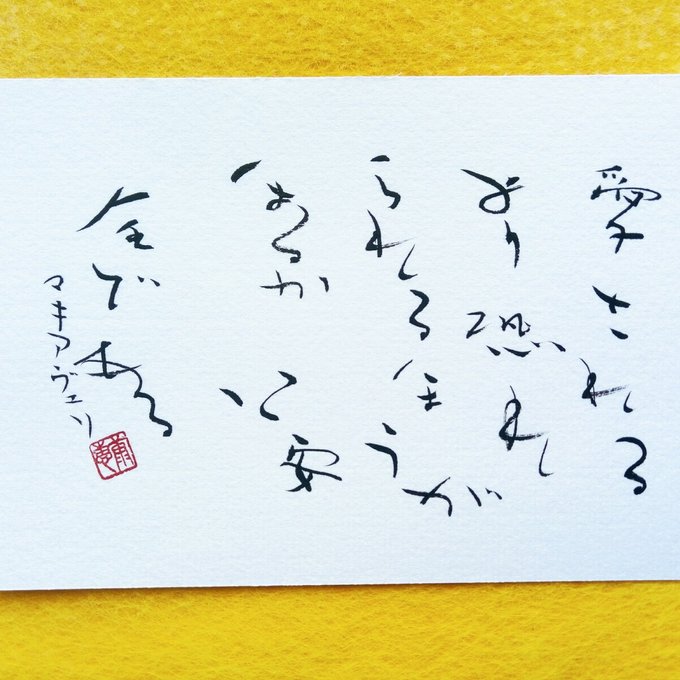 愛される
より恐れ
られるほうが
はるかに安
全である
マキアヴェリ